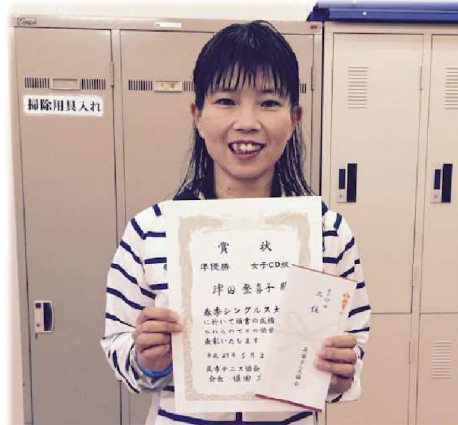 掃除用具入れ
賞状
準優勝 女子CD級
津田 登喜子 殿
春季シングルス大
に於いて頭書の成績
られたのでその栄誉
表彰いたします
平成27年5月3
テニス協会
会長
二位